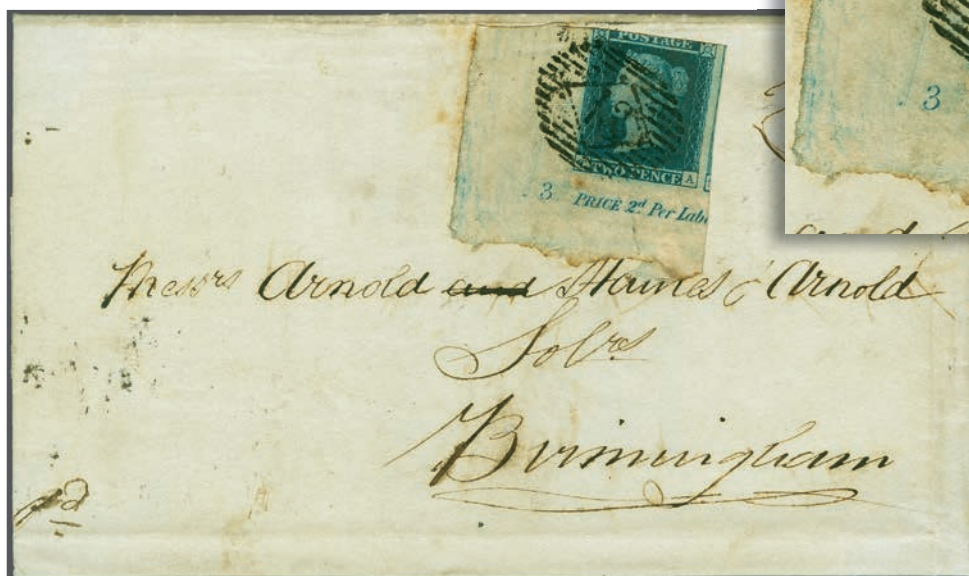 POSTAGE
TWO PENCE A
3 PRICE 2d Per Lab
3
Messrs Arnold and Haines & Arnold
Solrs
Birmingham
pd